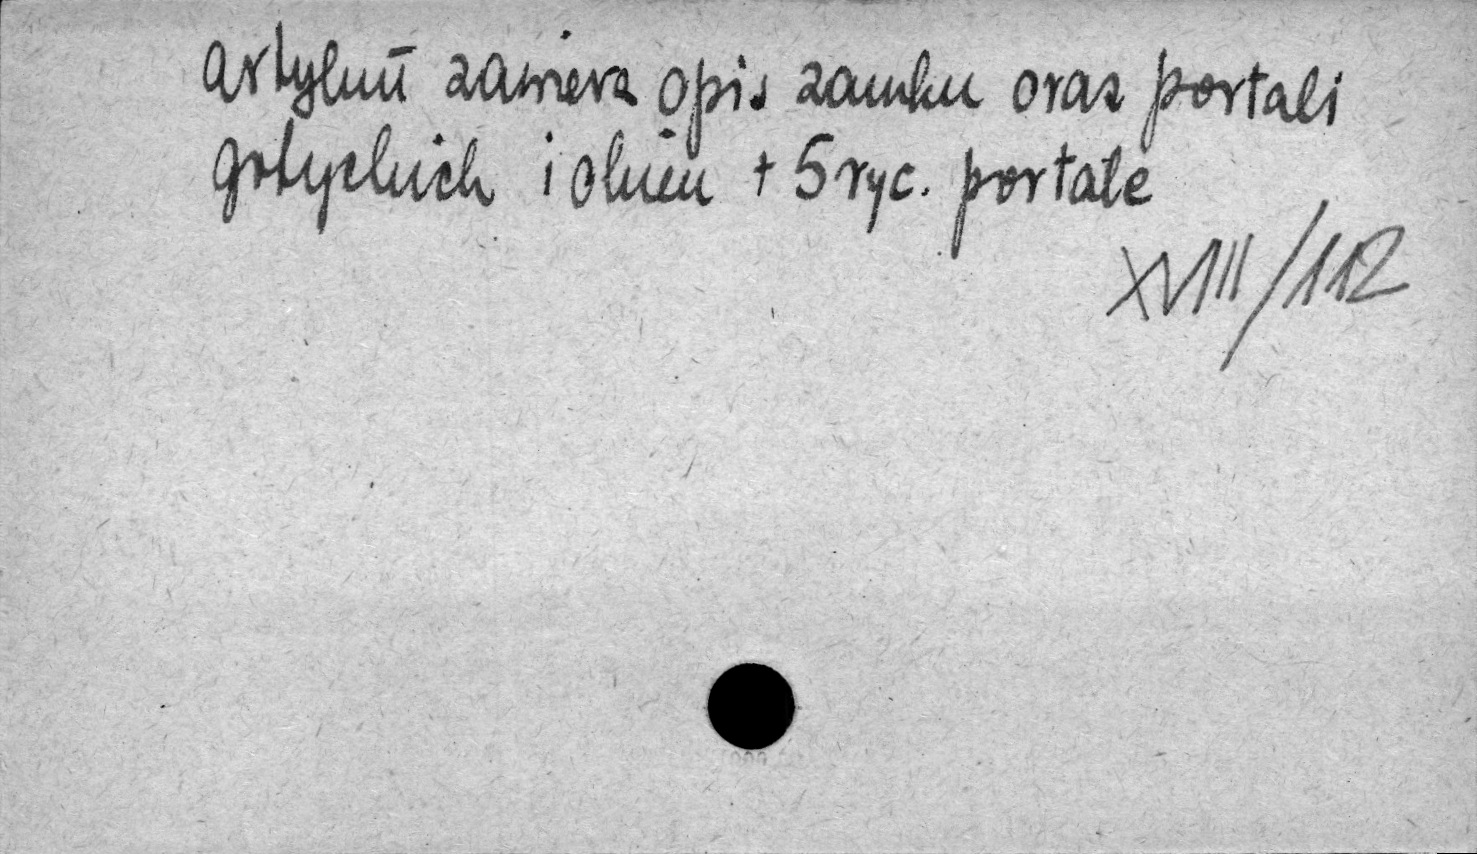 artykuł zawiera opis zamku oraz portali
gotyckich i okien + 5 ryc. portale
XVIII/112